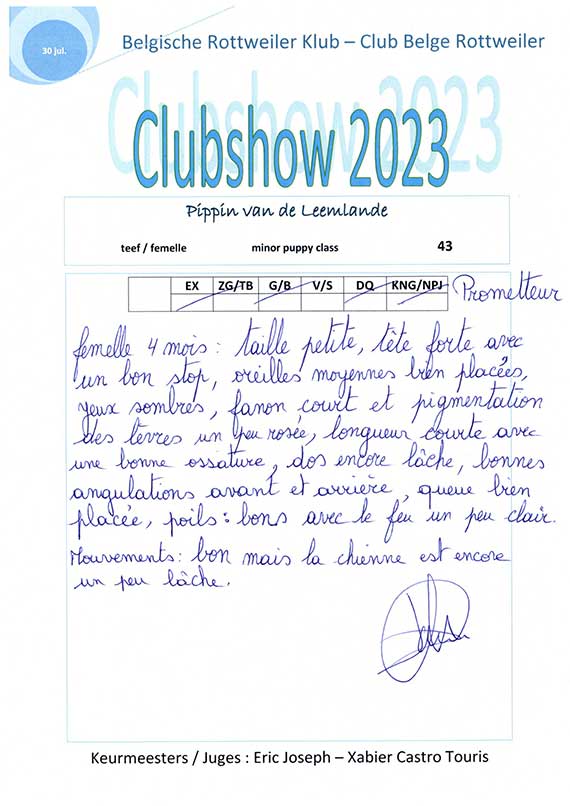 30 jul.
Belgische Rottweiler Klub – Club Belge Rottweiler
Clubshow 2023
Pippin van de Leemlande
teef / femelle minor puppy class 43
EX ZG/TB G/B V/S DQ KNG/NPJ
Prometteur
femelle 4 mois : taille petite, tête forte avec
un bon stop, oreilles moyennes bien placées,
yeux sombres, fanon court et pigmentation
des lèvres un peu rosée, longueur courte avec
une bonne ossature, dos encore lâche, bonnes
angulations avant et arrière, queue bien
placée, poils : bons avec le feu un peu clair.
Mouvements : bon mais la chienne est encore
un peu lâche.
Keurmeesters / Juges : Eric Joseph – Xabier Castro Touris